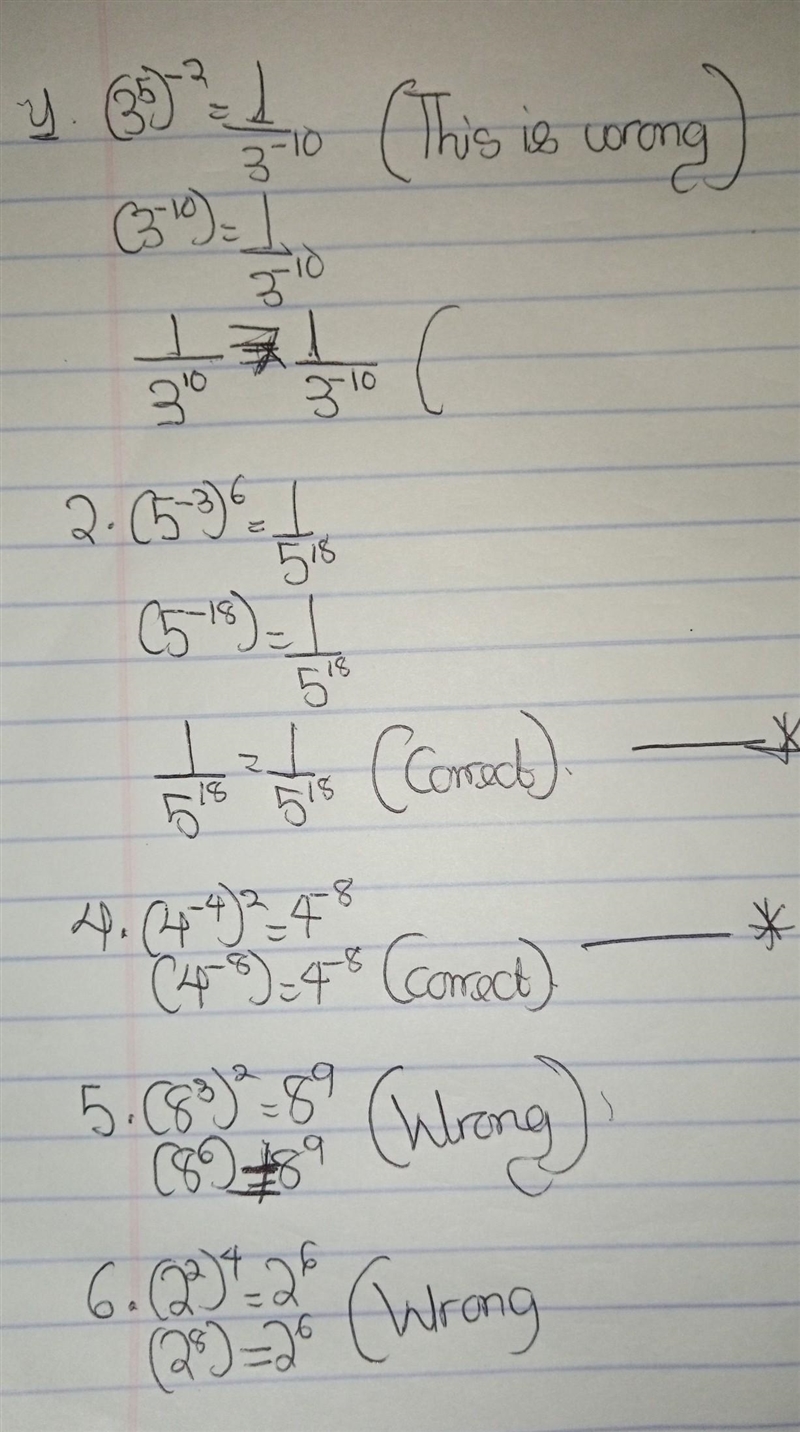 1. (3⁵)⁻² = 1/3⁻¹⁰ (This is wrong)
(3⁻¹⁰) = 1/3⁻¹⁰
1/3¹⁰ ≠ 1/3⁻¹⁰ (
2. (5⁻³)⁶ = 1/5¹⁸
(5⁻¹⁸) = 1/5¹⁸
1/5¹⁸ = 1/5¹⁸ (Correct). *
4. (4⁻⁴)² = 4⁻⁸
(4⁻⁸) = 4⁻⁸ (Correct) *
5. (8³)² = 8⁹ (Wrong)
(8⁶) ≠ 8⁹
6. (2²)⁴ = 2⁶ (Wrong
(2⁸) = 2⁶